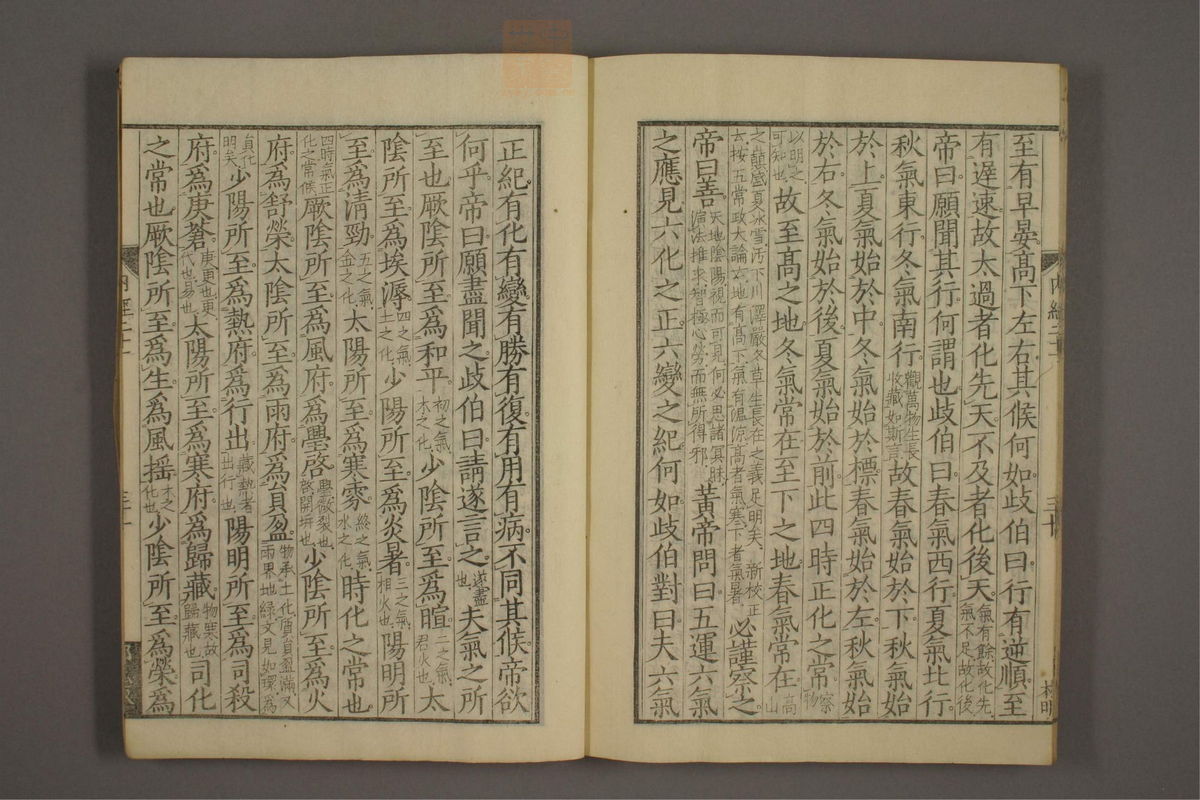 至有早晏高下左右其候何如歧伯曰行有逆順至
有遲速故太過者化先天不及者化後天氣有餘故化先氣不足故化後
帝曰願聞其行何謂也歧伯曰春氣西行夏氣北行
秋氣東行冬氣南行觀萬物生長收藏如斯言故春氣始於下秋氣始
於上夏氣始於中冬氣始於標春氣始於左秋氣始
於右冬氣始於後夏氣始於前此四時正化之常察物
以明之可知也故至高之地冬氣常在至下之地春氣常在高山
之巔盛夏冰雪汚下川澤嚴冬草生長在之義足明矣新校正云按五常政大論云地有高下氣有溫涼高者氣寒下者氣暑必謹察之
帝曰善天地陰陽視而可見何必思諸冥昧演法推求智極心勞而無所得邪黃帝問曰五運六氣
之應見六化之正六變之紀何如歧伯對曰夫六氣
内經二十一
三十
正紀有化有變有勝有復有用有病不同其候帝欲
何乎帝曰願盡聞之歧伯曰請遂言之遂盡也夫氣之所
至也厥陰所至爲和平初之氣木之化少陰所至爲暄二之氣君火也太
陰所至爲埃溽四之氣土之化少陽所至爲炎暑三之氣相火也陽明所
至爲清勁五之氣金之化太陽所至爲寒雰終之氣水之化時化之常也
四時氣正化之常候厥陰所至爲風府爲璺啓璺微裂也啓開坼也少陰所至爲火
府爲舒榮太陰所至爲雨府爲員盈物承土化質員盈滿又雨界地綠文見如環爲
員化明矣少陽所至爲熱府爲行出藏熱者出行也陽明所至爲司殺
府爲庚蒼庚更也更代也易也太陽所至爲寒府爲歸藏物寒故歸藏也司化
之常也厥陰所至爲生爲風搖木之化也少陰所至爲榮爲
内經二十一